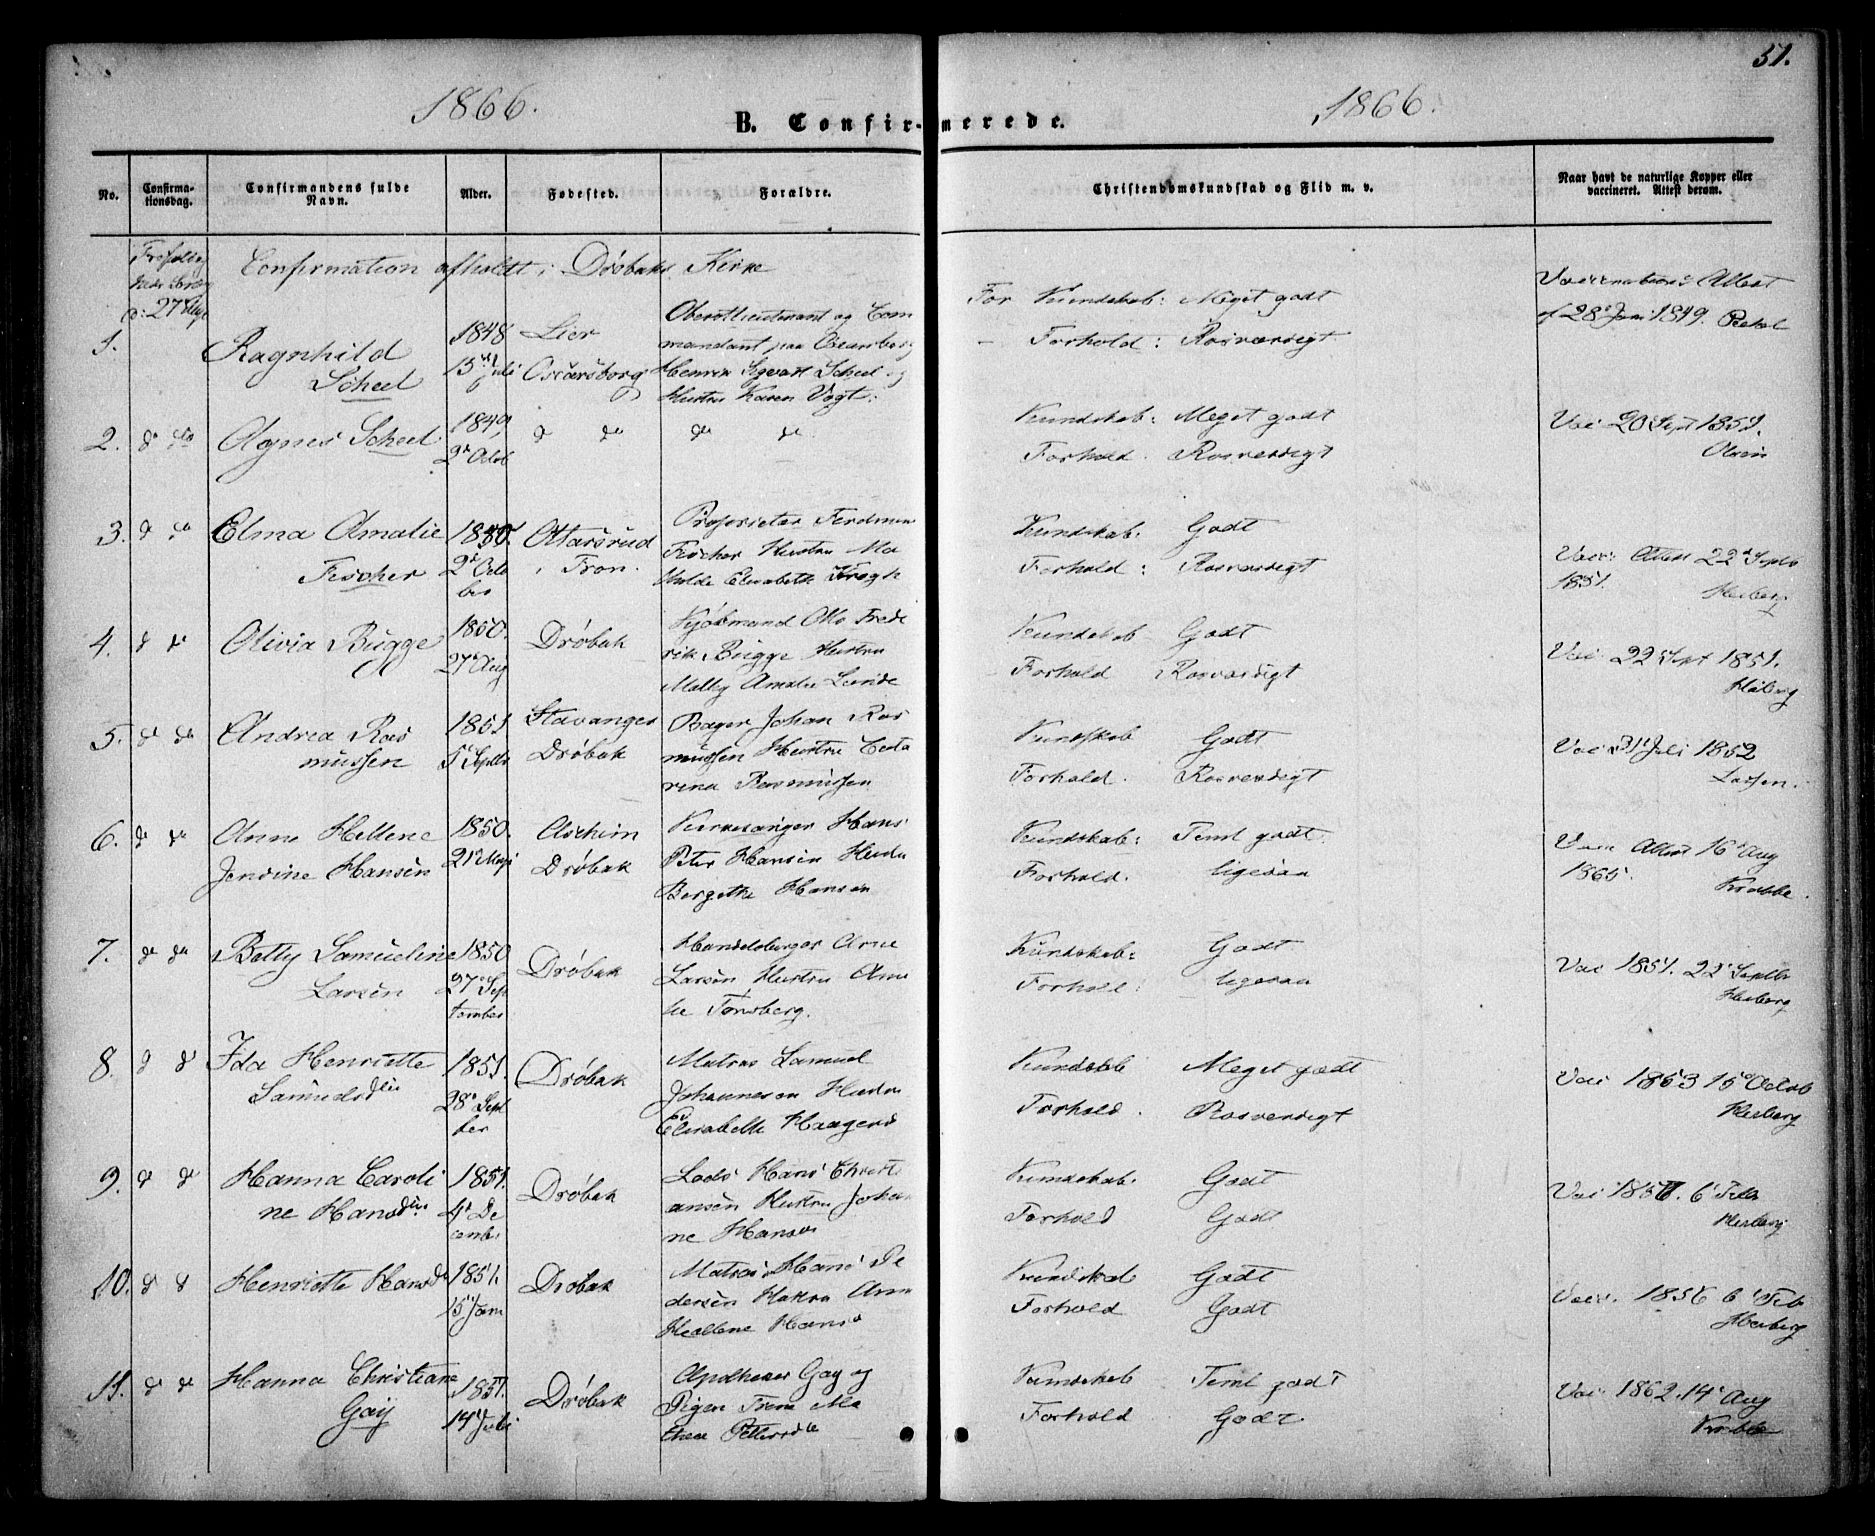 51.
1866.
1866.
B. Confir-merede.
No.
Confirma-
tionsdag.
Confirmandens fulde
Navn.
Alder.
Fødested.
Forældre.
Christendomskundskab og Flid m. v.
Naar havt de naturlige Kopper eller
vaccineret. Attest derom.
Confirmation afholdt i Drøbaks Kirke
d: 27 Maj
1.
Ragnhild
Scheel
1848
15 Juli
Lier
Oscarsborg
Oberstlieutenant og Com
mandant paa Oscarsborg
Henrik Sigvart Scheel og
Hustru Karen Vogt.
For Kundskab: Meget godt
- Forhold: Rosværdigt
Vaccinations Attest
af 28 Juni 1849.
2. do do
Agnes Scheel
1849,
2 Octob
do do
do do
Kundskab: Meget godt
Forhold. Rosverdigt
Vac 20 Sept 1851.
3. do do
Elma Amalie
Fischer
1850.
2 Octo
ber
Ottarsrud
i Fron.
Proprietær Ferdinan
Fischer Hustru Ma
thilde Elisabeth Krogh
Kundskab. Godt
Forhold: Rosværdigt
Vac: Attest 22 Septb
1851.
Heiberg
4. do do
Olivia Bugge
1850.
27 Aug
Drøbak
Kjøbmand Otto Frede
rik Bugge Hustru
Mally Amalie Lunde
Kundskab Godt
Forhold Rosværdigt
Vac: 22 Sept 1851.
Heiberg
5. do do
Andrea Ras
mussen
1851
5 Septb
Stavanger
Drøbak
Bager Johan Ras
mussen Hustru Cata
rina Rasmussen
Kundskab Godt
Forhold. Rosverdigt
Vac 31 Juli 1852
Lassen.
6. do do
Anne Hellene
Jensine Hansen
1850.
21 Maj
Aschim
Drøbak
Kirkesanger Hans
Peter Hansen Hustru
Bergethe Hansen
Kundskab: Teml godt.
Forhold. ligesaa
Vac Attest 16 Aug
1865. Krabbe.
7. do do
Betty Samueline
Larsen
1850
27 Sep
tember
Drøbak
Handelsborger Arne
Larsen Hustru Ama
lie Tønsberg.
Kundskab: Godt
Forhold: ligesaa
Vac 1851. 22 Septb
Heiberg
8. do do
Ida Henriette
Samuelsdtr
1851.
28 Sept
ber
Drøbak
Matros Samuel
Johannesen Hustru
Elisabeth Haagens
Kundskb Meget godt
Forhold. Rosverdigt
Vac 1853 15 Octob
Heiberg
9. do do
Hanna Caroli
ne Hansdtr
1851.
4 De
cember
Drøbak
Lods Hans Christi
ansen Hustru Johan
ne Hansd
Kundskab. Godt
Forhold Godt
Vac 1856. 6 Feb
Heiberg
10. do do
Henriette Hansd
1851.
15 Jan
Drøbak
Matros Hans Pe
dersen Hustru Ann
Hellene Hansd
Kundskab Godt
Forhold Godt
Vacc. 1856 6 Feb
Heiberg
11. do do
Hanna Christiane
Gay
1851.
14 Juli
Drøbak
Apotheker Gay og
Pigen Trene Ma
thea Pettersdtr
Kundskab Teml godt
Forhold Godt
Vac. 1862. 14 Aug
Krabbe